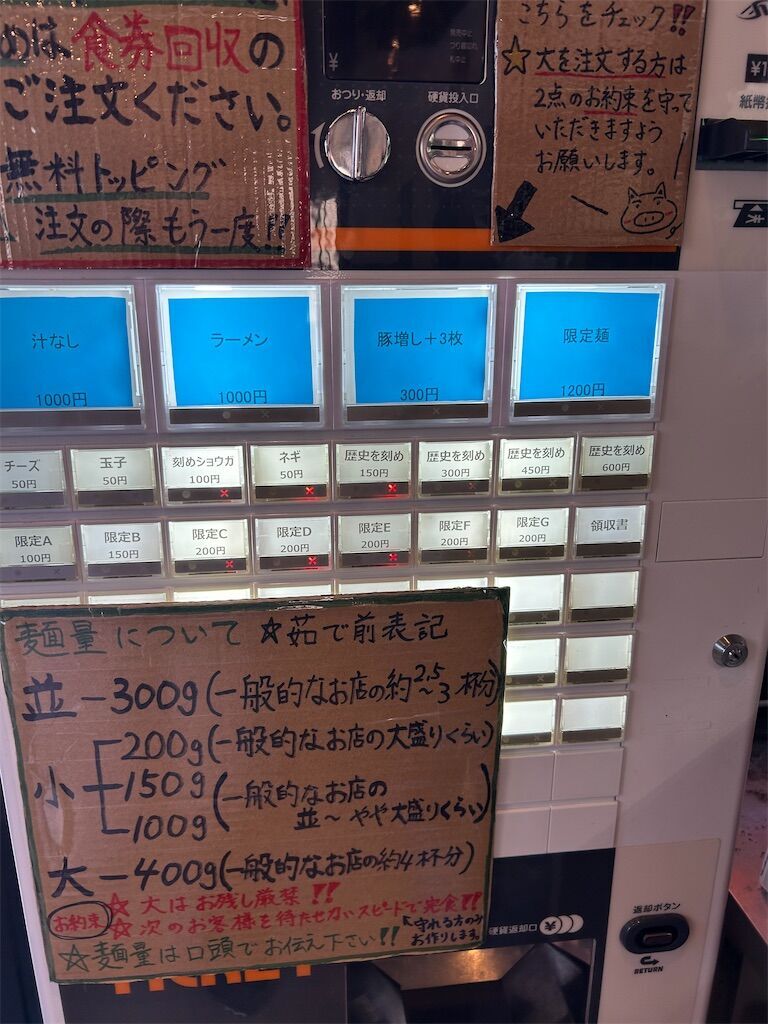 めは、食券回収の
ご注文ください。
無料トッピング
注文の際もう一度!!
¥
発売中止
つり銭切れ
札中止
おつり・返却
硬貨投入口
こちらをチェック!!
☆大を注文する方は
2点のお約束を守って
いただきますよう
お願いします。
汁なし
1000円
ラーメン
1000円
豚増し+3枚
300円
限定麺
1200円
チーズ
50円
玉子
50円
刻めショウガ
100円
ネギ
50円
歴史を刻め
150円
歴史を刻め
300円
歴史を刻め
450円
歴史を刻め
600円
限定A
100円
限定B
150円
限定C
200円
限定D
200円
限定E
200円
限定F
200円
限定G
200円
領収書
麺量について ☆茹で前表記
並-300g(一般的なお店の約2.5~3杯分)
小
200g(一般的なお店の大盛りくらい)
150g
100g
(一般的なお店の
並~やや大盛りくらい)
大-400g(一般的なお店の約4杯分)
お約束
☆大はお残し厳禁!!
☆次のお客様を待たせないスピードで完食!!
↖守れる方のみ
お作りします。
☆麺量は口頭でお伝え下さい!!
硬貨返却口
¥
返却ボタン
RETURN
TICKET